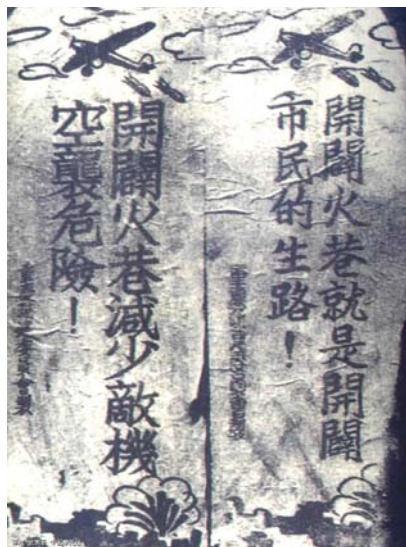 開闢火巷就是開闢
市民的生路！
開闢火巷減少敵機
空襲危險！